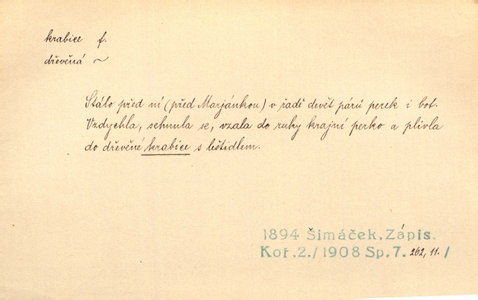 krabice f.
dřevěná ~
Stálo před ní (před Marjánkou) v řadě devět párů perek i bot.
Vzdychla, sehnula se, vzala do ruky krajní perko a plivla
do dřevěné krabice s leštidlem.
1894 Šimáček, Zápis.
Koř.2./1908 Sp.7. 262, 11./